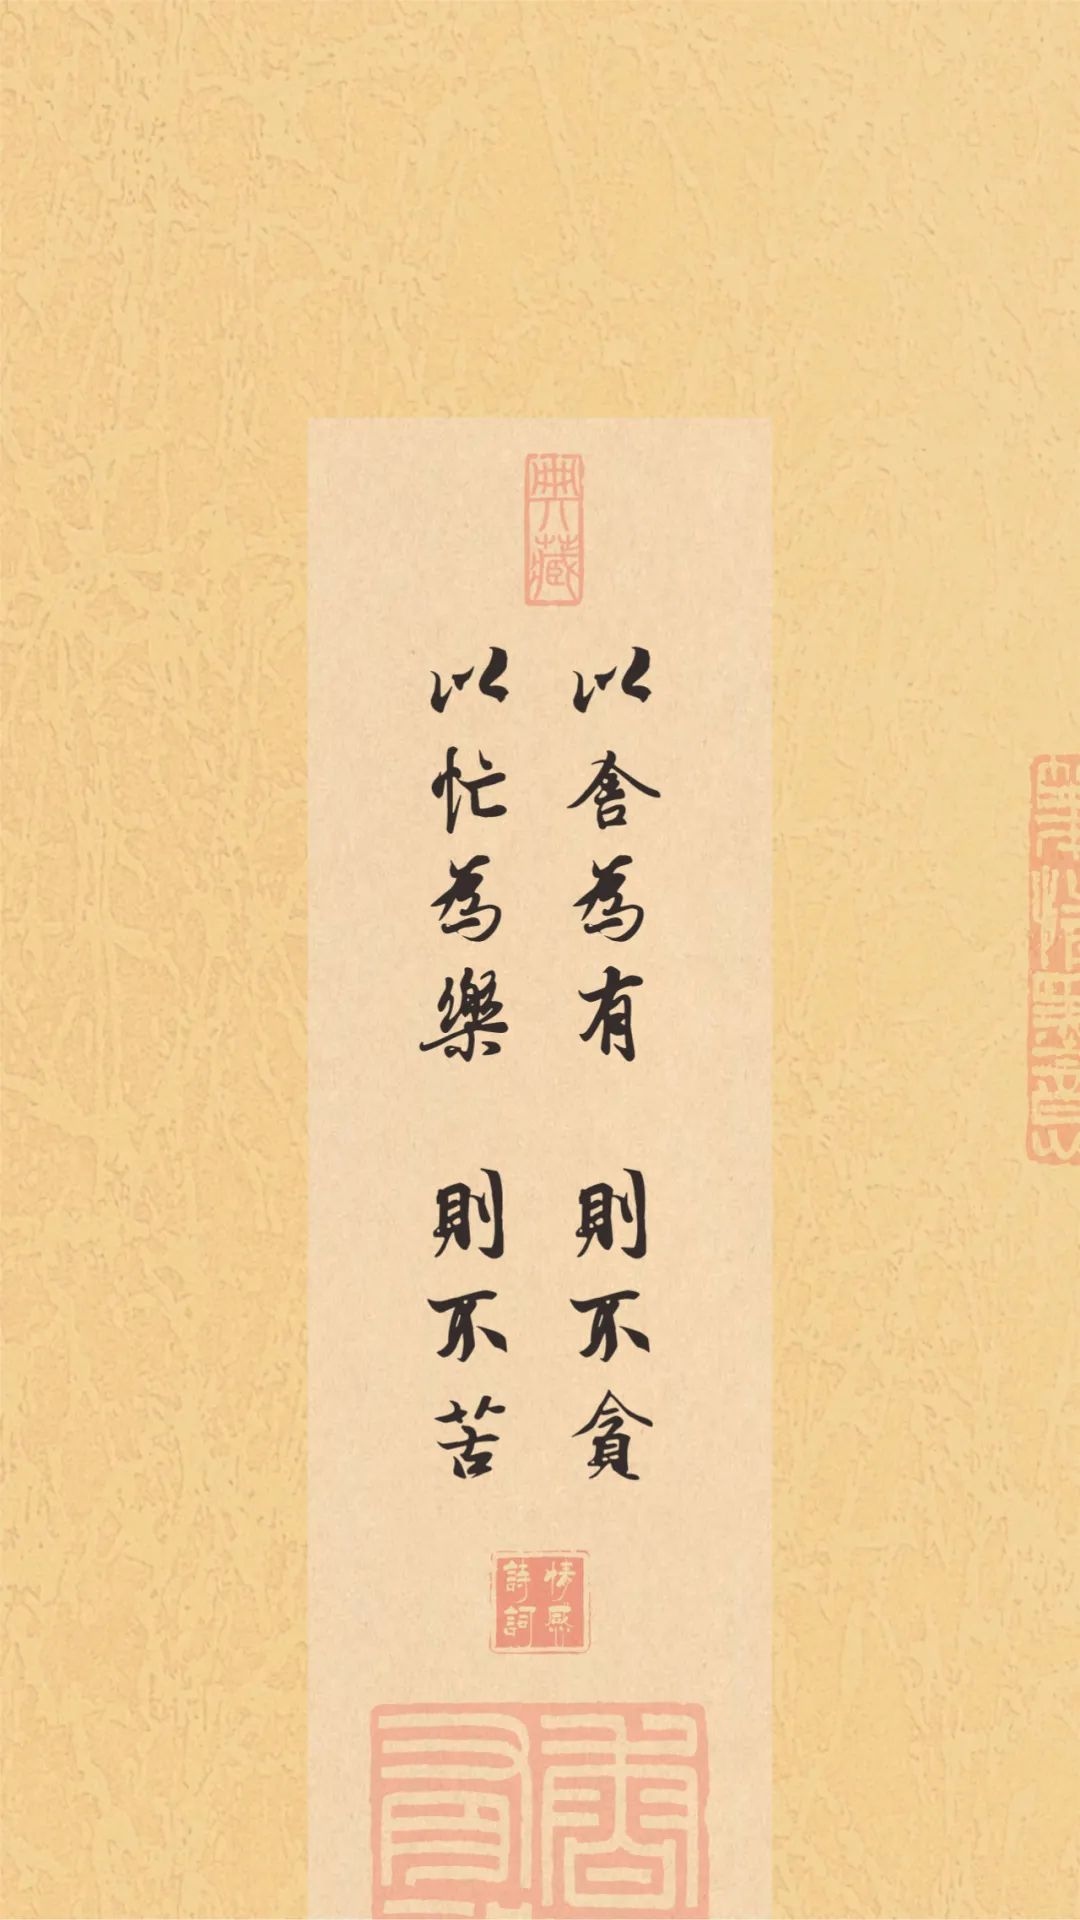 典藏
以舍為有 則不貪
以忙為樂 則不苦
情感
詩詞